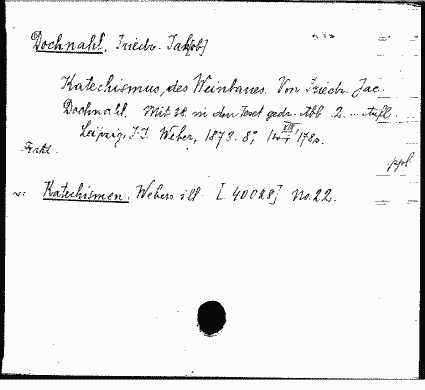 Dochnahl, Friedr. Jak[ob]
Katechismus des Weinbaues. Von Friedr. Jac.
Dochnahl. Mit 38 in den Text gedr. Abb. 2. ... Aufl.
Leipzig, J. J. Weber, 1873. 8°, VIII, 178 S.
Katechismen. Webers ill. [40028] No. 22.